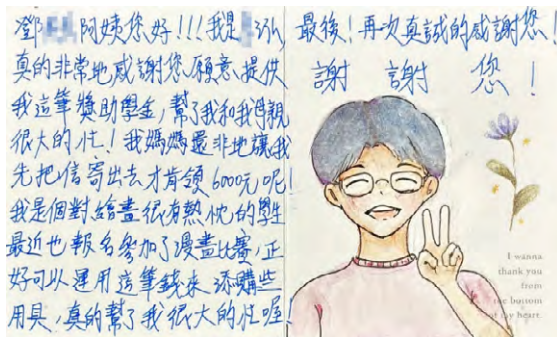 鄧阿姨您好!!!我是泓,
真的非常地感謝您願意提供
我這筆獎助學金,幫了我和我母親
很大的忙!我媽媽還非地讓我
先把信寄出去才肯領6000元呢!
我是個對繪畫很有熱忱的學生
最近也報名參加了漫畫比賽,正
好可以運用這筆錢來添購些
用具,真的幫了我很大的忙喔!
最後!再次真誠的感謝您!
謝謝您!
I wanna
thank you
from
the bottom
of my heart.